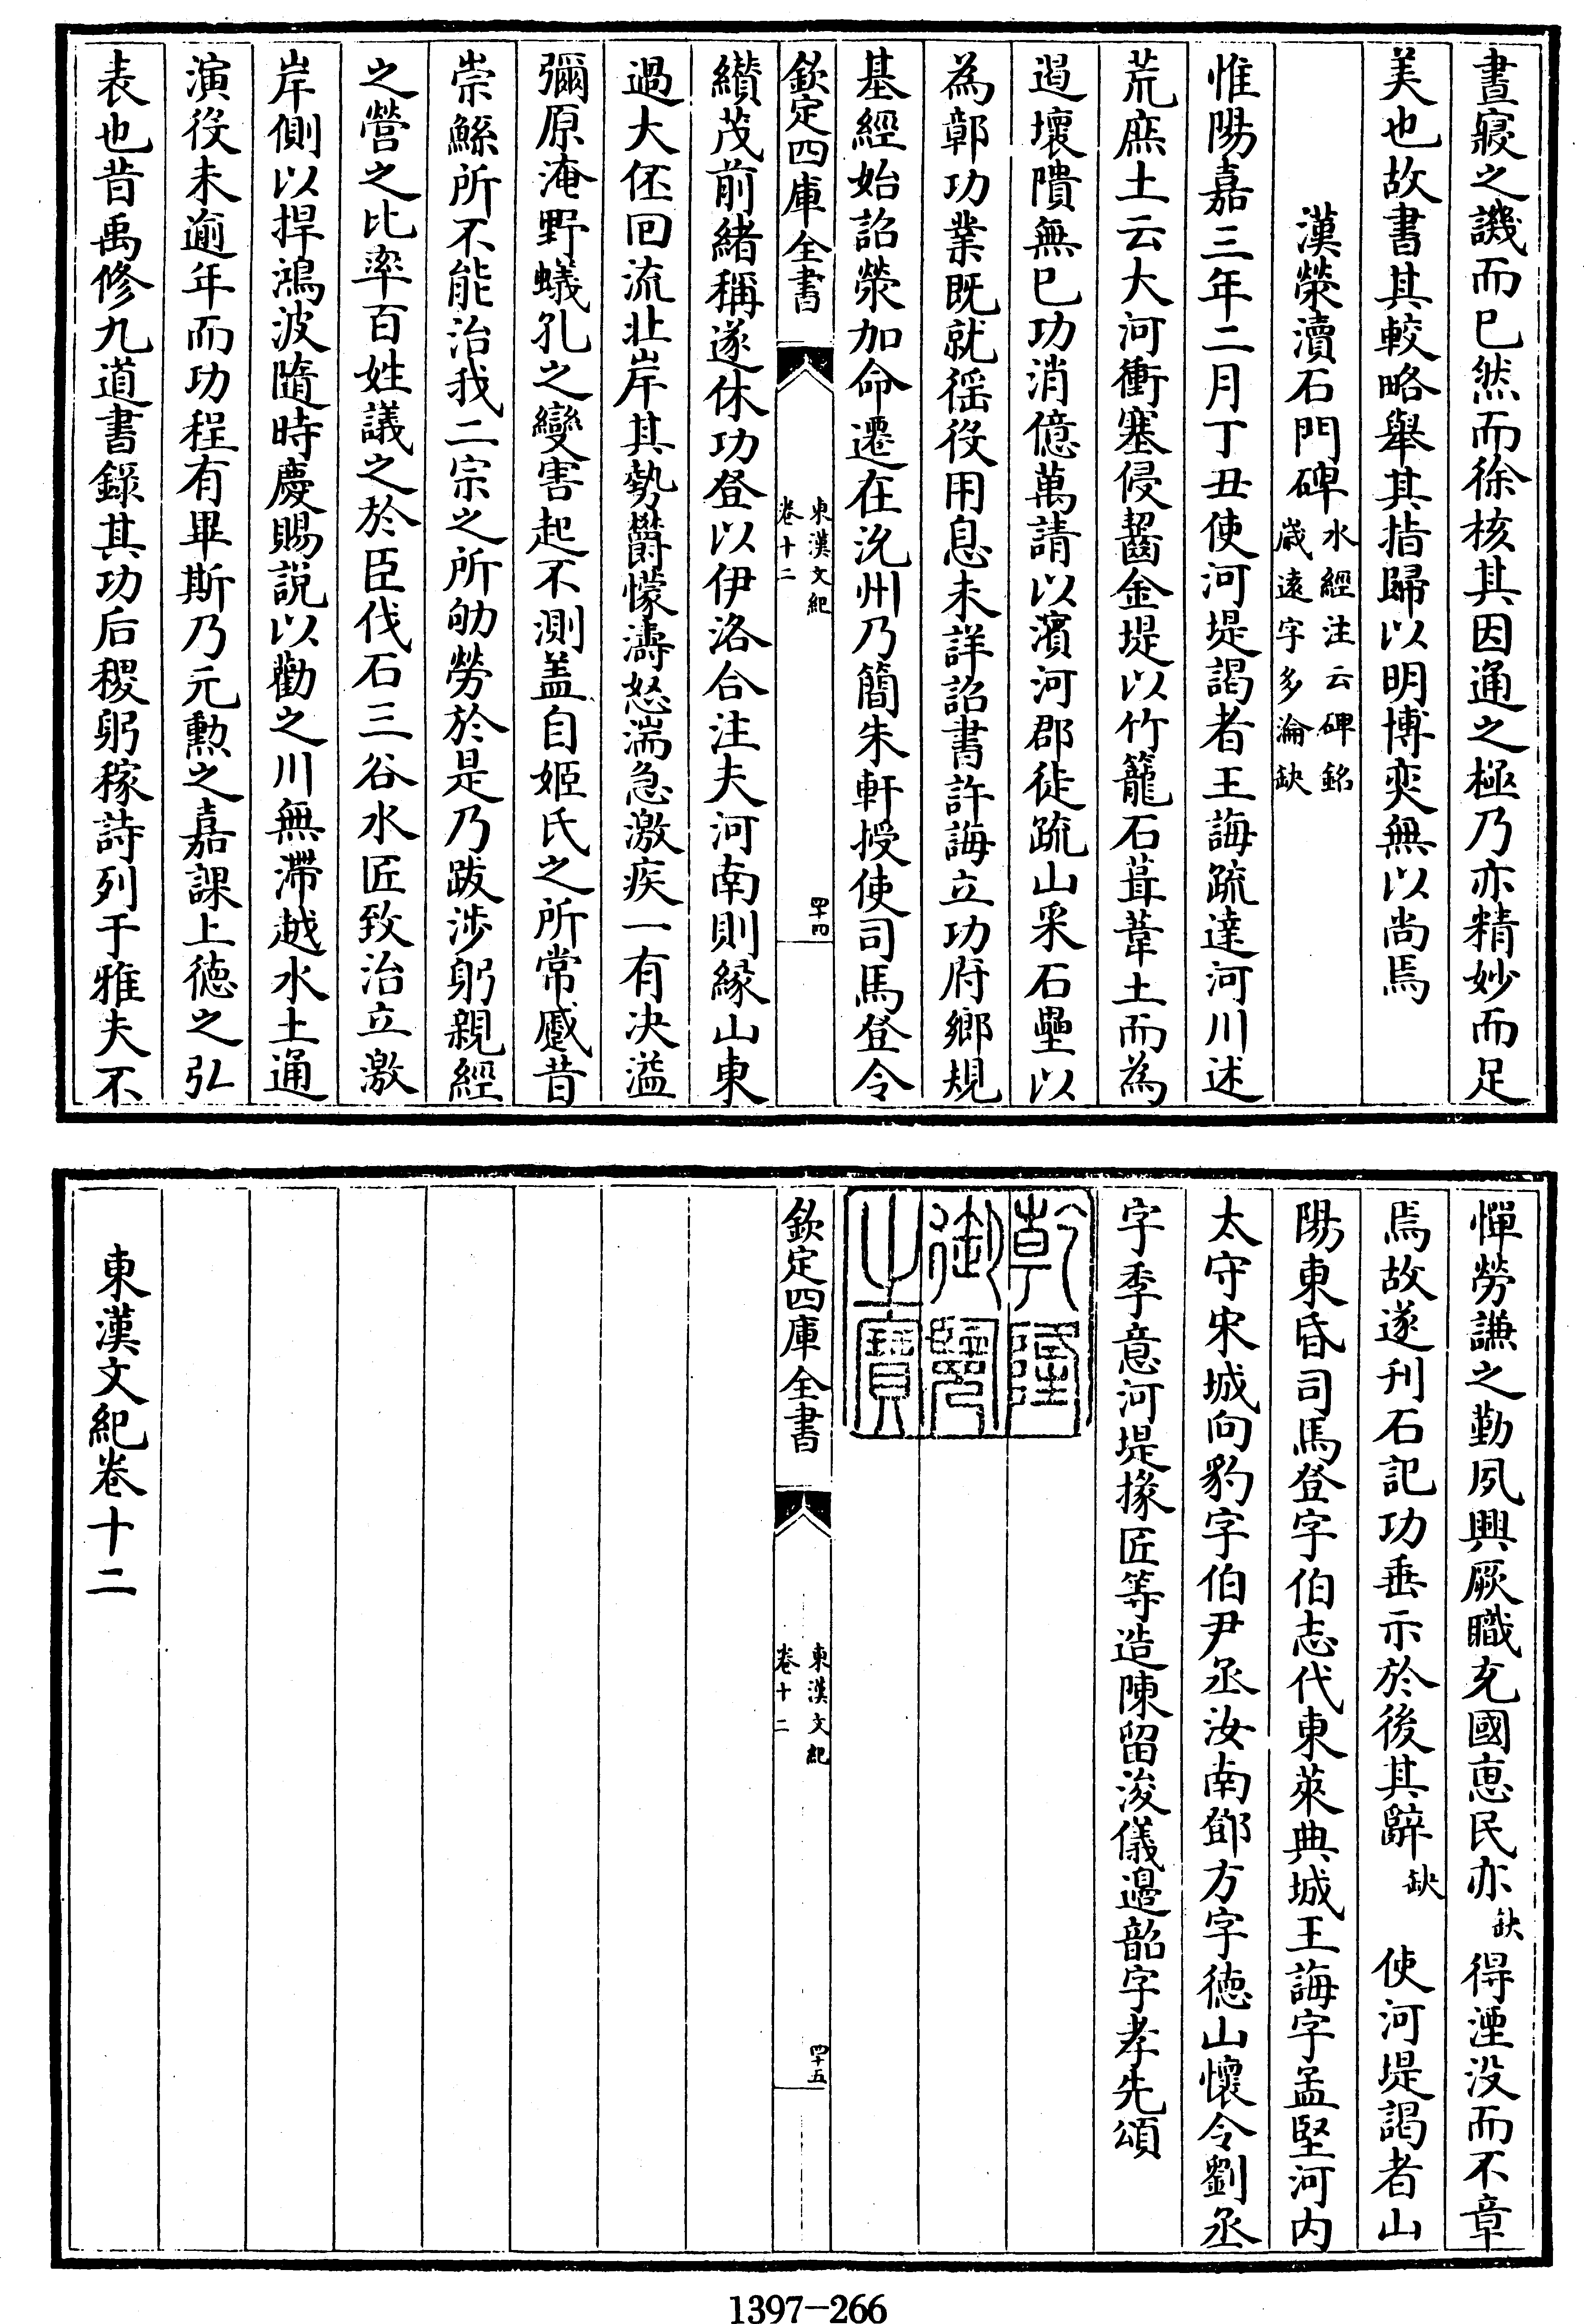 晝寢之譏而已然而徐核其因通之極乃亦精妙而足
美也故書其較略舉其指歸以明博奕無以尚焉
漢滎瀆石門碑水經注云碑銘
歲遠字多淪缺
惟陽嘉三年二月丁丑使河堤謁者王誨疏達河川述
荒庶土云大河衝塞侵齧金堤以竹籠石葺葦土而為
遏壞隤無已功消億萬請以濱河郡徒疏山采石壘以
為鄣功業既就徭役用息未詳詔書許誨立功府鄉規
基經始詔滎加命遷在沇州乃簡朱軒授使司馬登令
欽定四庫全書
東漢文紀
卷十二
四十四
纘茂前緒稱遂休功登以伊洛合注夫河南則緣山東
過大伾回流北岸其勢鬱懞濤怒湍急激疾一有决溢
彌原淹野蟻孔之變害起不測盖自姬氏之所常慼昔
崇鯀所不能治我二宗之所劬勞於是乃跋涉躬親經
之營之比率百姓議之於臣伐石三谷水匠致治立激
岸側以捍鴻波隨時慶賜説以勸之川無滯越水土通
演役未逾年而功程有畢斯乃元勲之嘉課上德之弘
表也昔禹修九道書錄其功后稷躬稼詩列于雅夫不
憚勞謙之勤夙興厥職充國惠民亦缺得湮没而不章
焉故遂刊石記功垂示於後其辭缺　使河堤謁者山
陽東昏司馬登字伯志代東萊典城王誨字孟堅河内
太守宋城向豹字伯尹丞汝南鄧方字德山懷令劉丞
字季意河堤掾匠等造陳留浚儀邉韶字孝先頌
乾隆
御覽
之寶
欽定四庫全書
東漢文紀
卷十二
四十五
東漢文紀卷十二
1397-266